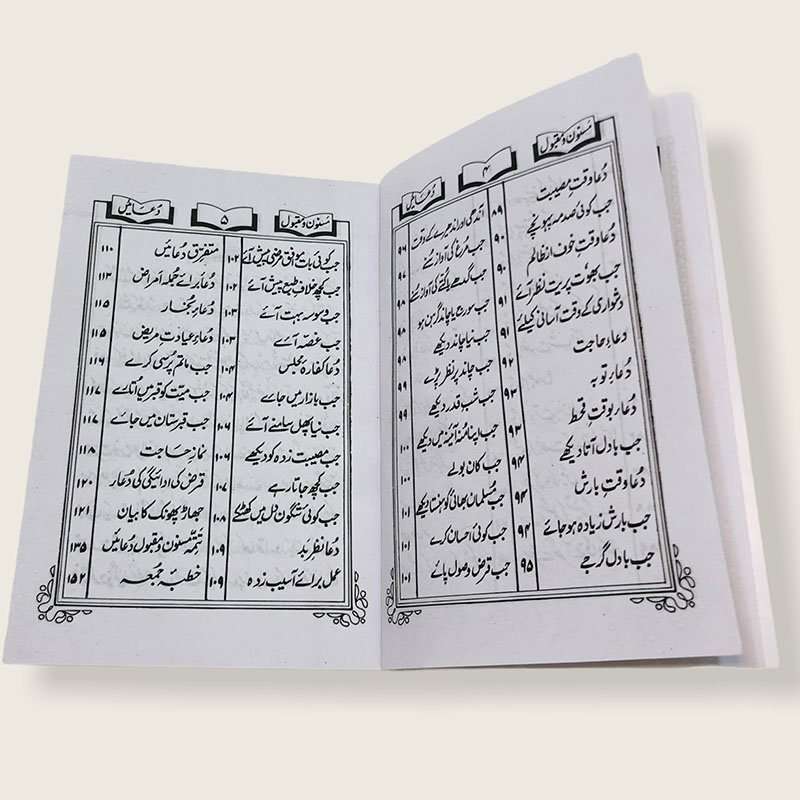 مسنون و مقبول ۴ دعائیں
دُعا وقتِ مصیبت ۸۹
جب کوئی صدمہ پہونچے ۹۰
دُعا وقتِ خوف از ظالم ۹۰
جب بھوت پریت نظر آئے ۹۱
دشواری کے وقت آسانی کیلئے ۹۱
دعاءِ حاجت ۹۲
دُعاءِ توبہ ۹۳
دُعاء بوقتِ قحط ۹۳
جب بادل آتا دیکھے ۹۴
دُعا وقتِ بارش ۹۴
جب بارش زیادہ ہو جائے ۹۴
جب بادل گرجے ۹۵
آندھی اور اندھیرے کے وقت ۹۶
جب مُرغ کی آواز سُنے ۹۷
جب گدھے یا کتّے کی آواز سُنے ۹۸
جب سورج یا چاند گرہن ہو ۹۸
جب نیا چاند دیکھے ۹۸
جب چاند پر نظر پڑے ۹۹
جب شب قدر دیکھے ۹۹
جب اپنا مُنہ آئینہ میں دیکھے ۱۰۰
جب کان بولے ۱۰۰
جب مُسلمان بھائی کو ہنستا دیکھے ۱۰۱
جب کوئی احسان کرے ۱۰۱
جب قرض وصول پائے ۱۰۱
مسنون و مقبول ۵ دُعائیں
جب کوئی بات موافق مرضی پیش آئے ۱۰۲
جب کچھ خلافِ طبع پیش آئے ۱۰۲
جب وسوسہ بہت آئے ۱۰۳
جب غصّہ آئے ۱۰۳
دُعا کفارہ مجلس ۱۰۴
جب بازار میں جائے ۱۰۴
جب نیا پھل سامنے آئے ۱۰۶
جب مصیبت زدہ کو دیکھے ۱۰۶
جب کچھ جاتا رہے ۱۰۷
جب کوئی شگون دل میں کھٹکے ۱۰۸
دُعا نظرِ بد ۱۰۹
عمل برائے آسیب زدہ ۱۰۹
متفرق دُعائیں ۱۱۰
دُعا برائے جُملہ امراض ۱۱۳
دُعاءِ بُخار ۱۱۵
دُعاءِ عیادتِ مریض ۱۱۵
جب ماتم پُرسی کرے ۱۱۶
جب میّت کو قبر میں اُتارے ۱۱۷
جب قبرستان میں جائے ۱۱۷
نمازِ حاجت ۱۱۸
قرض کی ادائیگی کی دُعاء ۱۲۰
جھاڑ پھونک کا بیان ۱۲۱
تتمّہ مسنون و مقبول دُعائیں ۱۳۵
خطبۂ جُمعہ ۱۵۲